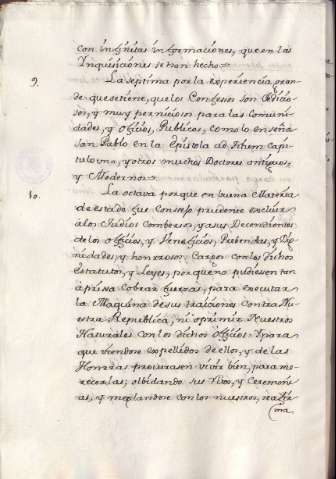 con infinitas informaciones, que en las
Inquisiciones se han hecho.
9. La septima por la experiencia gran-
de que se tiene, que los Confesos son sedicio-
sos, y muy perniciosos para las Comuni-
dades, y Oficios Publicos, como lo enseña
San Pablo en la Epistola ad Titum capi-
tulo uno, y otros muchos Doctores antiguos,
y Modernos.
10. La octava porque en buena Materia
de estado fue Consejo prudente excluir
a los Judios Combersos, y a sus Decendientes
de los officios, y Veneficios, Prebendas, y Dig-
nidades, y honrrosos Cargos con los dichos
Estatutos, y Leyes, porque no pudiesen tan
a priesa Cobrar fuerzas, para executar
la Maquina de sus traiciones Contra Nu-
estra Republica, ni oprimir Nuestros
Naturales con los dichos officios. Y para
que viendose expellidos de ellos, y de las
Honrras procurasen vivir bien, para me-
recerlas; olbidando sus Ritos, y Ceremoni-
as, y mezclandose con los nuestros,